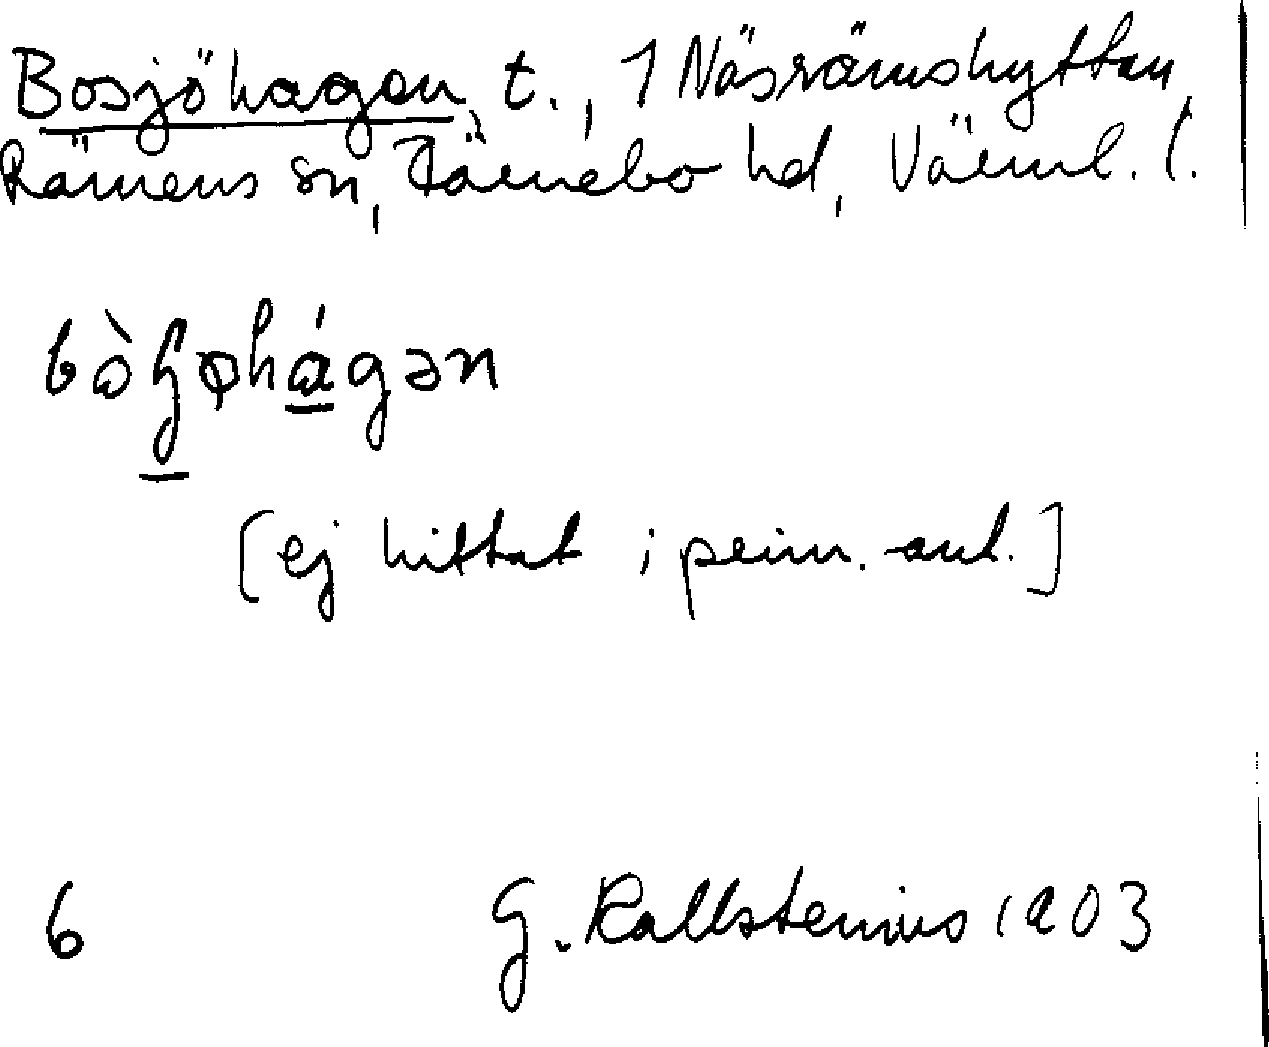 Bosjöhagen, t., 1 Näsrämshyttan,
Rämens sn, Färnebo hd, Värml. l.
[ej hittat i prim. ant.]
6 G. Kallstenius 1903